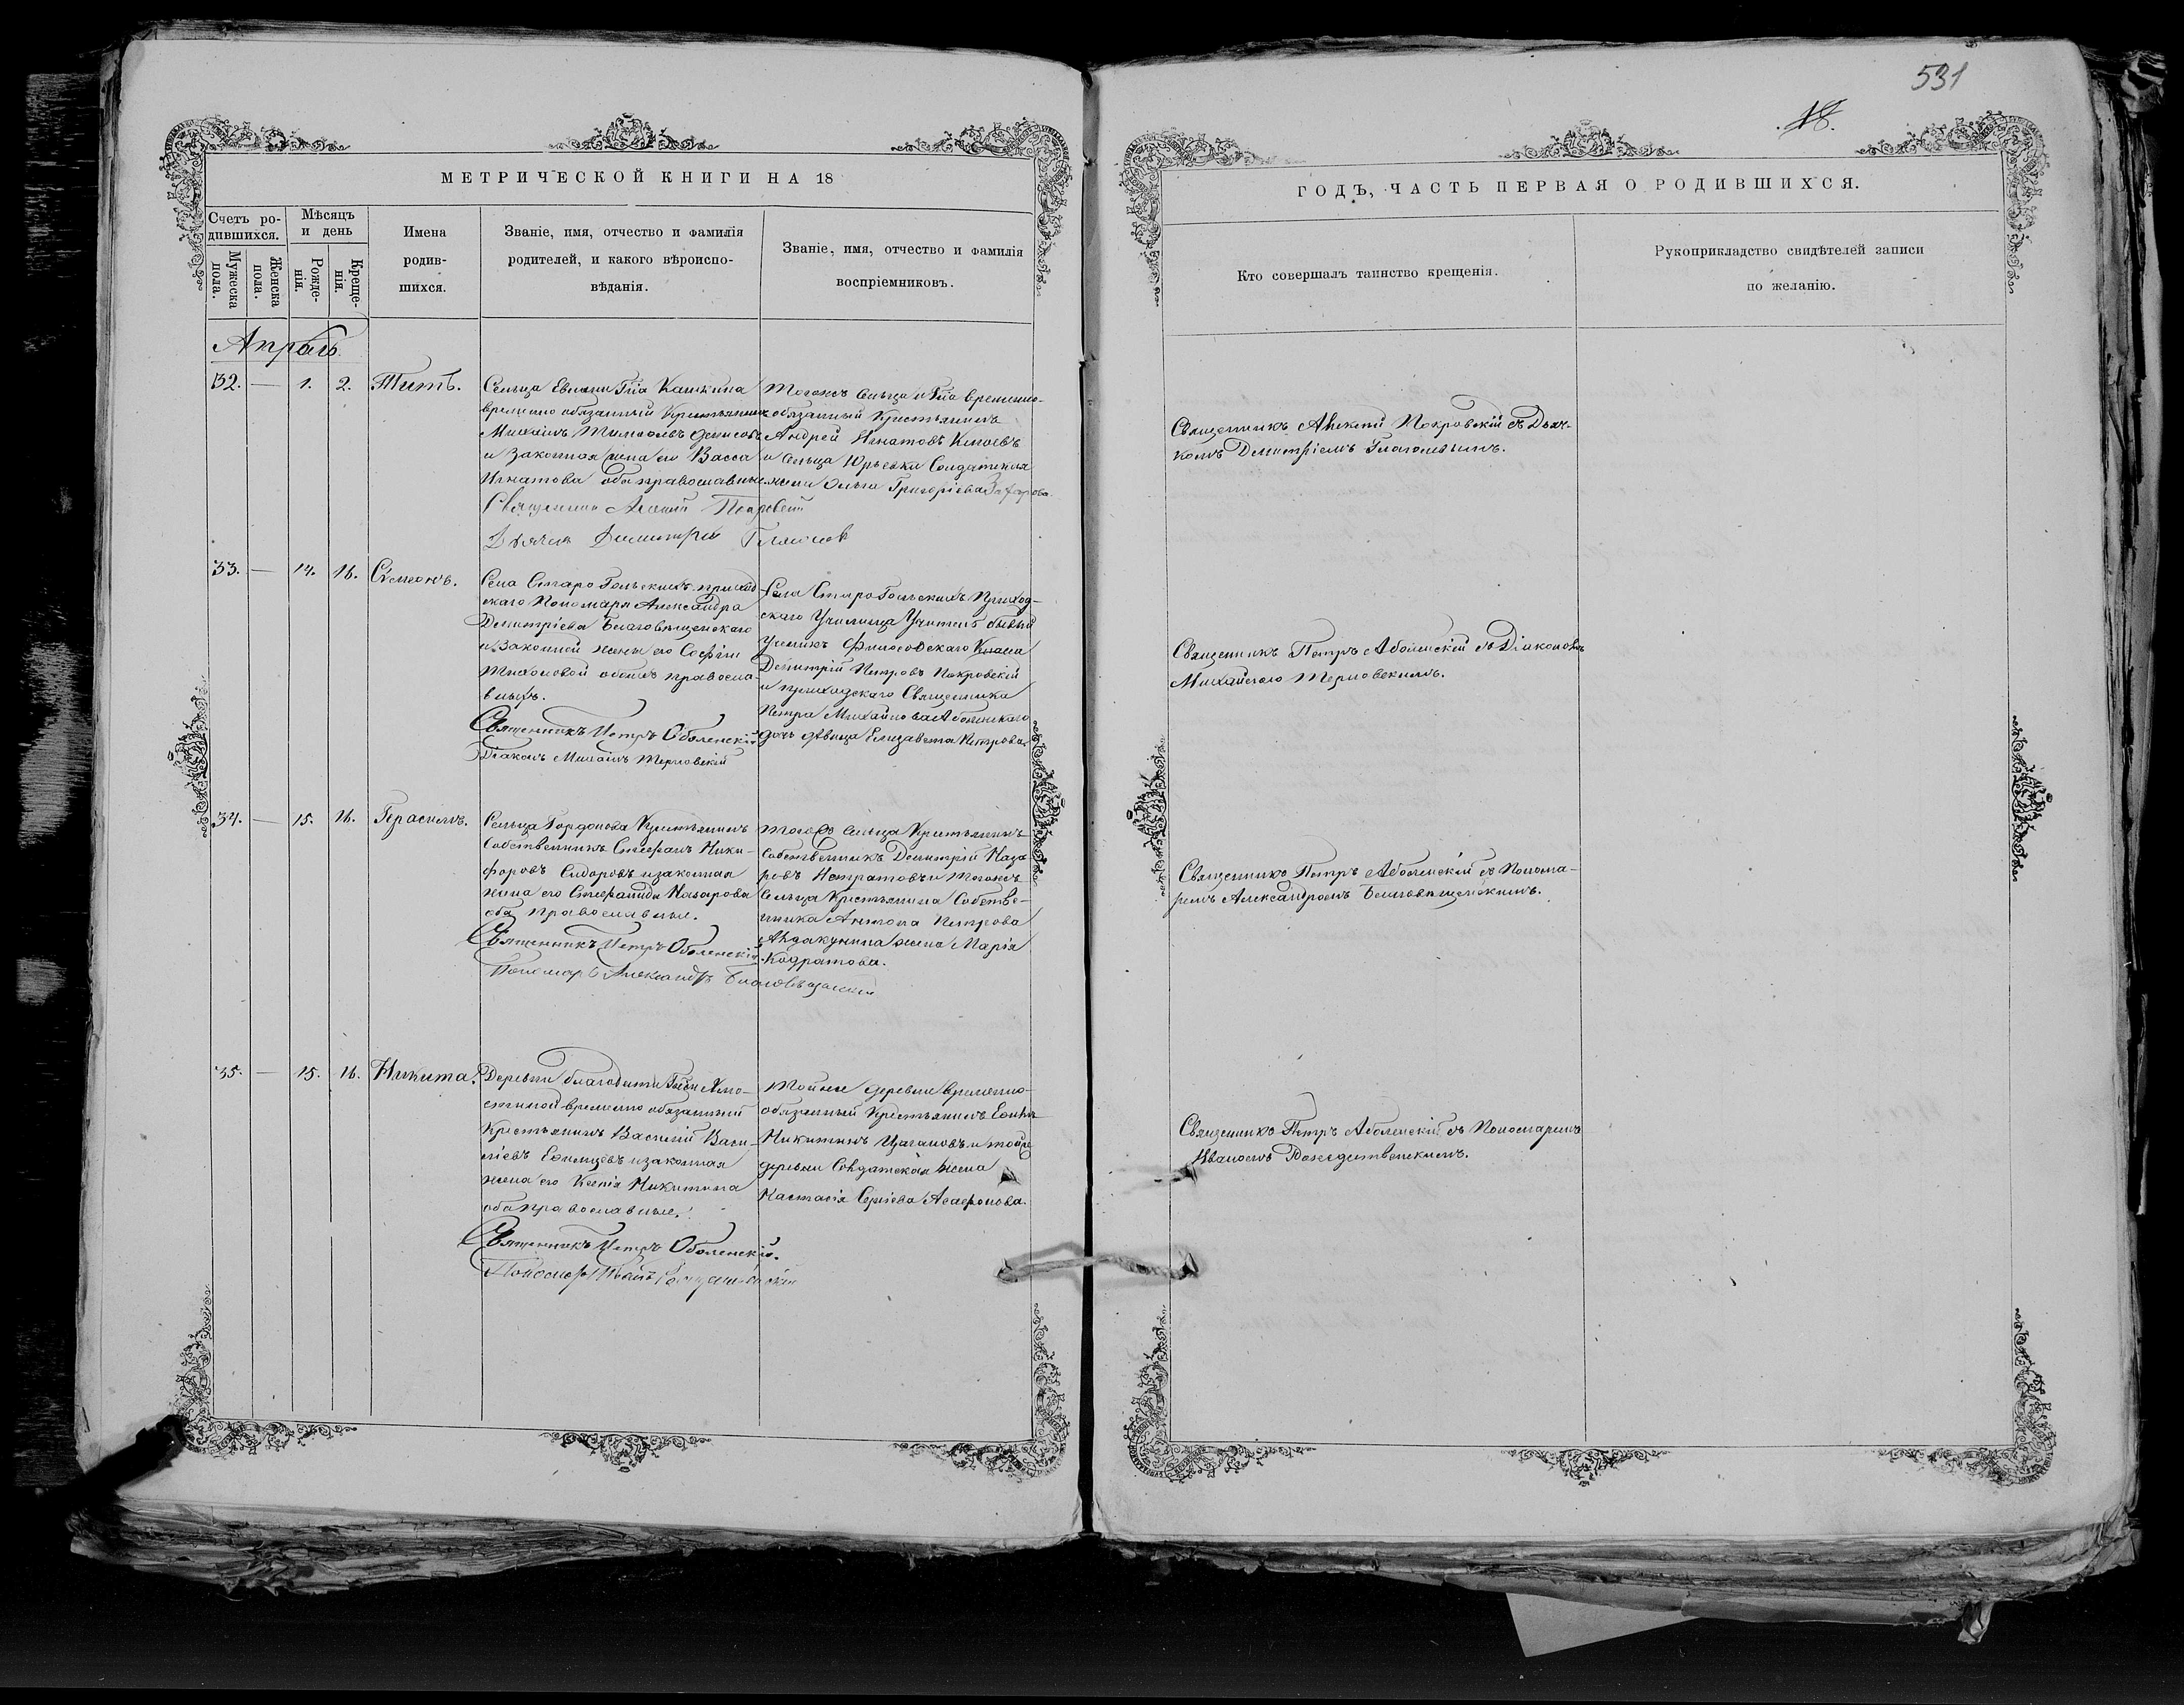 531
18.
МЕТРИЧЕСКОЙ КНИГИ НА 18
Счетъ ро-
дившихся.
Мужеска
пола.
Женска
пола.
Мѣсяцъ
и день
Рожде-
нія.
Креще-
нія.
Имена
родив-
шихся.
Званіе, имя, отчество и фамилія
родителей, и какого вѣроиспо-
вѣданія.
Званіе, имя, отчество и фамилія
воспріемниковъ.
Апрѣль
32. — 1. 2. Титъ.
Сельца Гна Кашкина
временно обязанный Крестьянинъ
Михаилъ Денисовъ
и законная жена его Васса
Игнатова оба православные
Священникъ Алексій Покровскій
Дьячекъ Димитрій
Тогожъ сельца и Гна временно-
обязанный Крестьянинъ
Андрей Игнатовъ
и Сельца Юрьевки Солдатская
жена Ольга Григоріева Захарова.
33. — 14. 16. Сѵмеонъ.
Села Старо Гольскихъ приход-
скаго Пономаря Александра
Димитріева Благовѣщенскаго
и законной жены его Софіи
Тихоновой обоихъ правосла-
вныхъ.
Священникъ Петръ Оболенскій
Діаконъ Михаилъ Терновскій
Села Старо Гольскихъ Приход-
скаго Училища Учитель бывый
Ученикъ Философскаго Класса
Димитрій Петровъ Покровскій
и приходскаго Священника
Петра Михайлова Аболенскаго
дочь дѣвица Елизавета Петрова
34. — 15. 16. Герасимъ.
Сельца Гордонова Крестьянинъ
Собственникъ Стефанъ Ники-
форовъ Сидоровъ и законная
жена его Стефанида Назарова
оба православные.
Священникъ Петръ Оболенскій
Пономарь Александръ Благовѣщенскій
Тогожъ сельца Крестьянинъ
Собственникъ Димитрій Наза
ровъ и тогожъ
Сельца Крестьянина Собстве-
нника Антона Петрова
Авдакунина жена Марія
Кодратова.
35. — 15. 16. Никита.
Деревни Благодати
временно обязанный
Крестьянинъ Василій Васи-
ліевъ и законная
жена его Ксенія Никитина
оба православные.
Священникъ Петръ Оболенскій.
Пономарь Иванъ
Тойже деревни временно-
обязанный Крестьянинъ
Никитинъ Цагановъ и тойже
деревни Солдатская жена
Настасія Сергіева Агафонова.
ГОДЪ, ЧАСТЬ ПЕРВАЯ О РОДИВШИХСЯ.
Кто совершалъ таинство крещенія.
Рукоприкладство свидѣтелей записи
по желанію.
Священникъ Алексій Покровскій съ Дьяч-
комъ Димитріемъ
Священникъ Петръ Аболенскій съ Діакономъ
Михаиломъ Терновскимъ.
Священникъ Петръ Аболенскій съ Понома-
ремъ Александромъ Благовѣщенскимъ.
Священникъ Петръ Аболенскій съ Пономаремъ
Иваномъ Рождественскимъ.